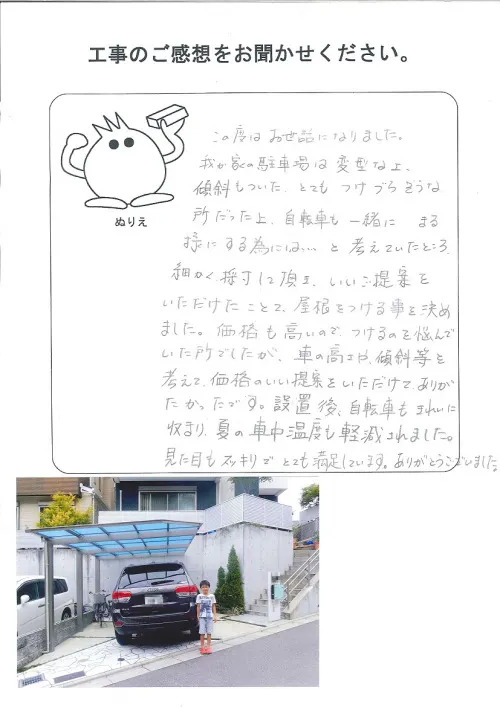 工事のご感想をお聞かせください。
ぬりえ
この度はお世話になりました。
我が家の駐車場は変型な上、
傾斜もついた、とてもつけづらそうな
所だった上、自転車も一緒に まる
様にする為には…と考えていたところ、
細かく採寸して頂き、いいご提案を
いただけたことで、屋根をつける事を決め
ました。価格も高いので、つけるのを悩んで
いた所でしたが、車の高さや、傾斜等を
考えて、価格のいい提案をいただけて、ありが
たかったです。設置後、自転車もきれいに
収まり、夏の車中温度も軽減されました。
見た目もスッキリでとても満足しています。ありがとうございました。